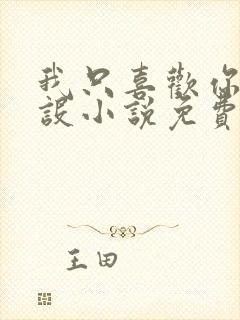 我只喜歡你
設小說免費
王田